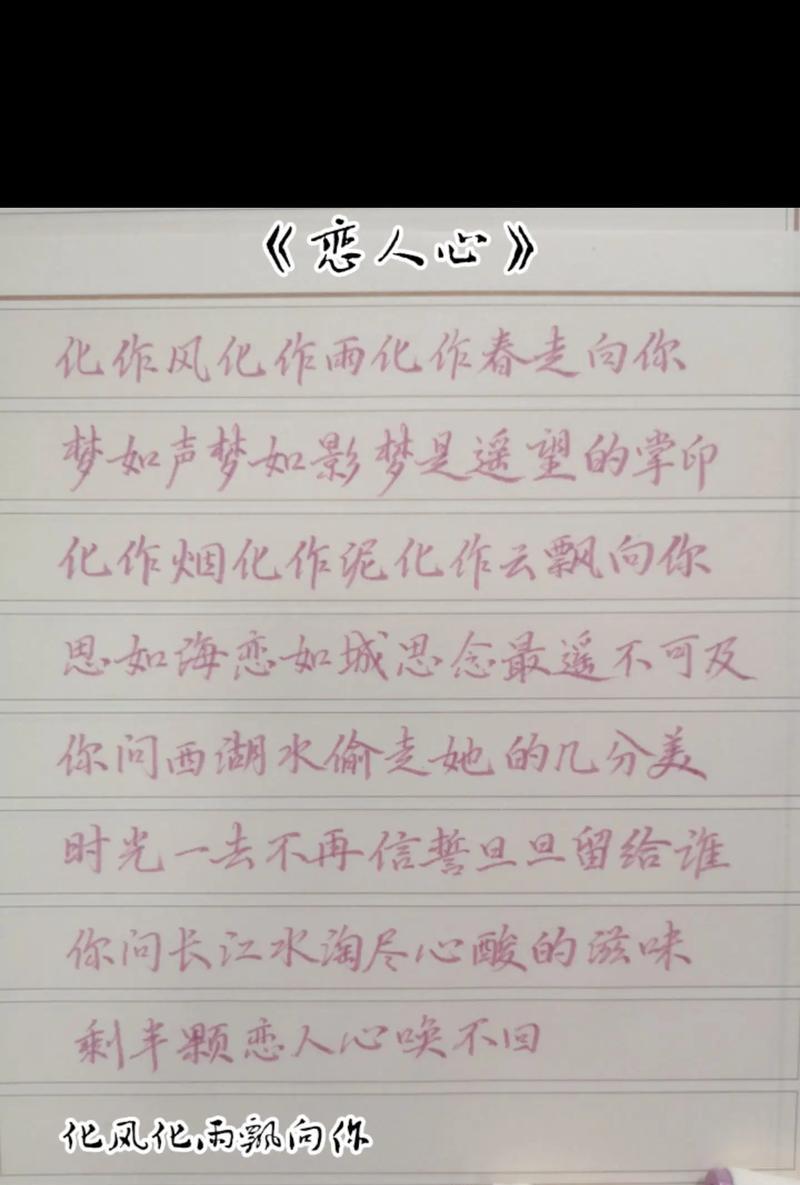 《恋人心》
化作风化作雨化作春走向你
梦如声梦如影梦是遥望的掌印
化作烟化作泥化作云飘向你
思如海恋如城思念最遥不可及
你问西湖水偷走她的几分美
时光一去不再信誓旦旦留给谁
你问长江水淘尽心酸的滋味
剩半颗恋人心唤不回
化风化雨飘向你